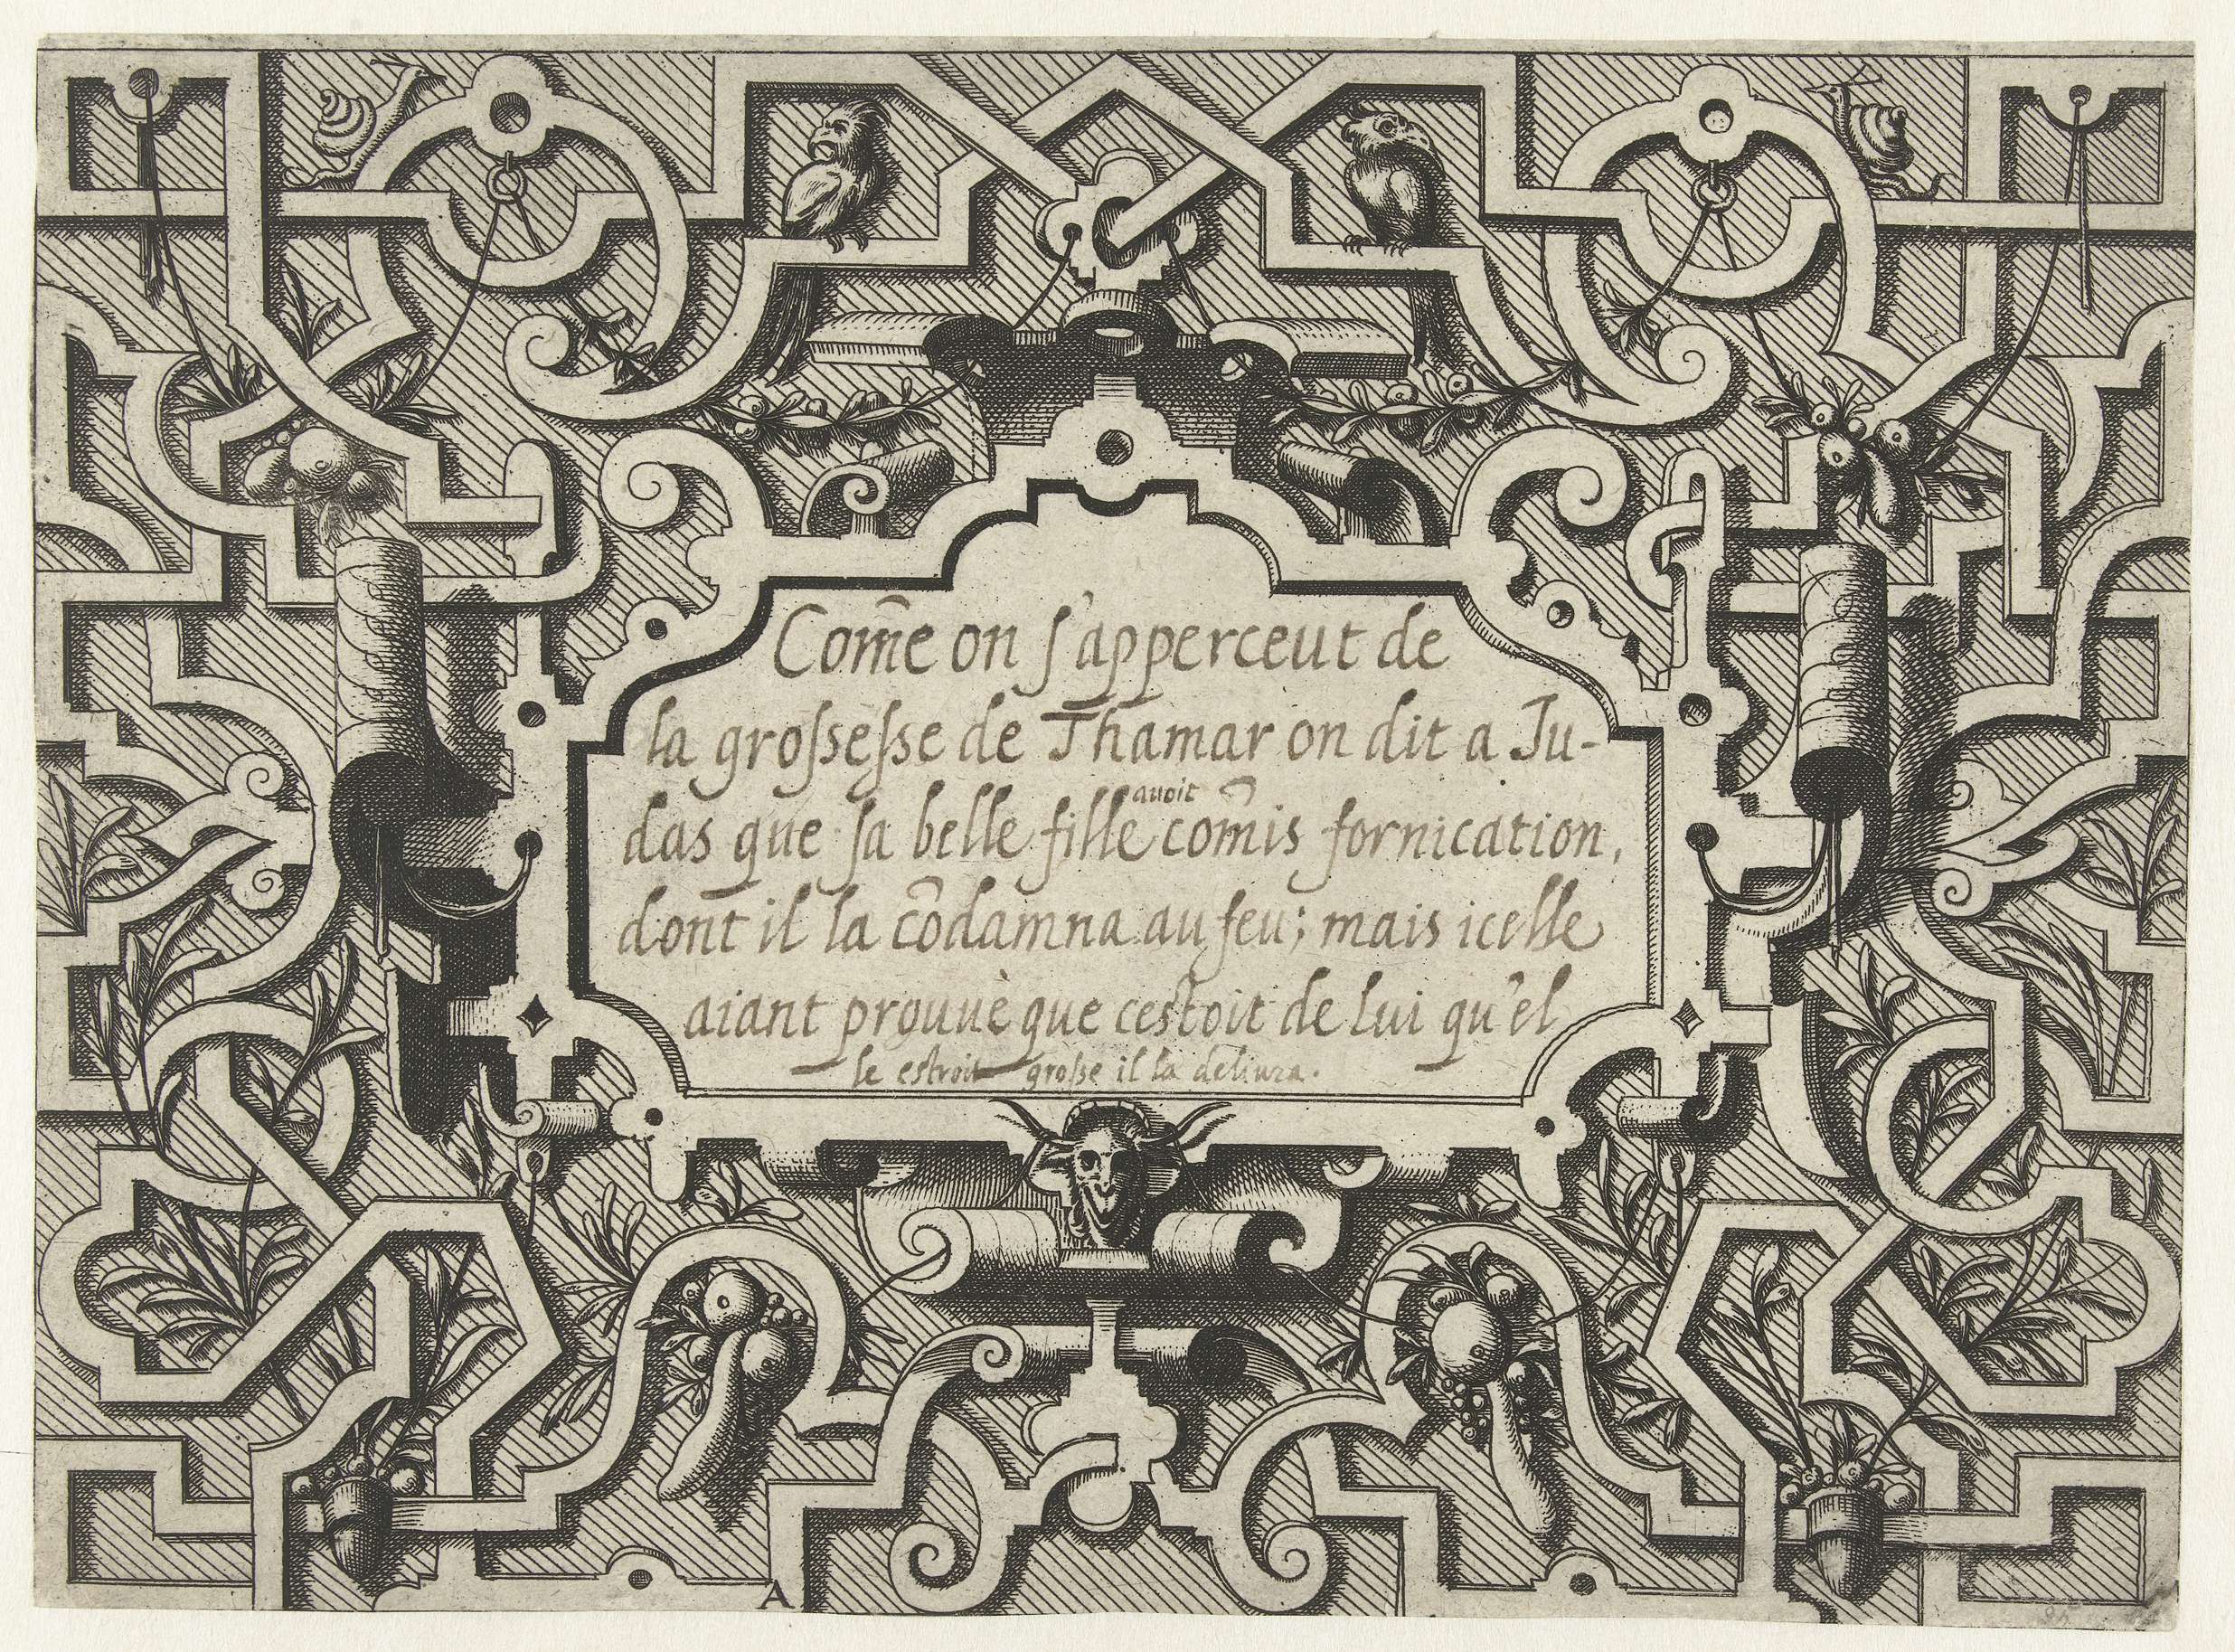 Com̃e on s'apperceut de
la grossesse de Thamar on dit a Ju-
das que sa belle fille avoit com̃is fornication,
dont il la cõdamna au feu; mais icelle
aiant prouvè que cestoit de lui qu'el
le estroit grosse il la delivra.
A